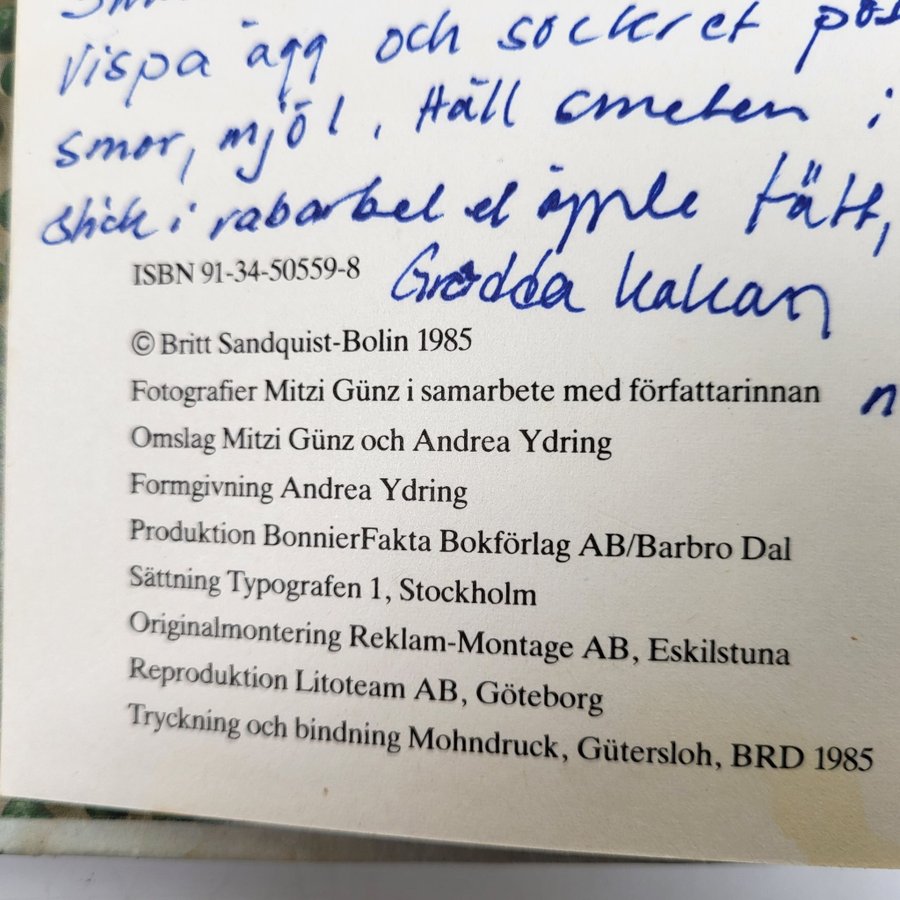 vispa ägg och sockret
smör, mjöl. Häll smeten i
stick i rabarber el äpple tätt,
ISBN 91-34-50559-8 Grädda kakan
© Britt Sandquist-Bolin 1985
Fotografier Mitzi Günz i samarbete med författarinnan
Omslag Mitzi Günz och Andrea Ydring
Formgivning Andrea Ydring
Produktion BonnierFakta Bokförlag AB/Barbro Dal
Sättning Typografen 1, Stockholm
Originalmontering Reklam-Montage AB, Eskilstuna
Reproduktion Litoteam AB, Göteborg
Tryckning och bindning Mohndruck, Gütersloh, BRD 1985